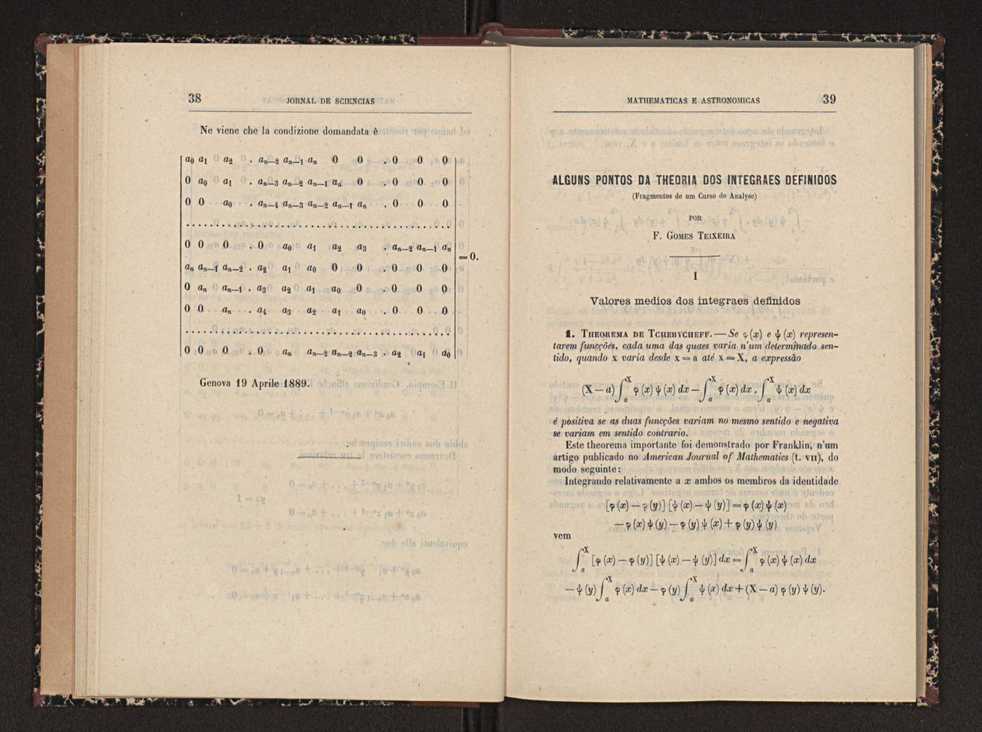 38 JORNAL DE SCIENCIAS
Ne viene che la condizione domandata è
a₀ a₁ a₂ . aₙ₋₂ aₙ₋₁ aₙ 0 0 . 0 0 0
0 a₀ a₁ . aₙ₋₃ aₙ₋₂ aₙ₋₁ aₙ 0 . 0 0 0
0 0 a₀ . aₙ₋₄ aₙ₋₃ aₙ₋₂ aₙ₋₁ aₙ . 0 0 0
. . . . . . . . . . . . . . . . . . . . . . . . . . . .
0 0 0 . 0 a₀ a₁ a₂ a₃ . aₙ₋₂ aₙ₋₁ aₙ
aₙ aₙ₋₁ aₙ₋₂ . a₂ a₁ a₀ 0 0 . 0 0 0 = 0.
0 aₙ aₙ₋₁ . a₃ a₂ a₁ a₀ 0 . 0 0 0
0 0 aₙ . a₄ a₃ a₂ a₁ a₀ . 0 0 0
. . . . . . . . . . . . . . . . . . . . . . . . . . . .
0 0 0 . 0 aₙ aₙ₋₂ aₙ₋₂ aₙ₋₃ . a₂ a₁ a₀
Genova 19 Aprile 1889.
MATHEMATICAS E ASTRONOMICAS 39
ALGUNS PONTOS DA THEORIA DOS INTEGRAES DEFINIDOS
(Fragmentos de um Curso de Analyse)
POR
F. GOMES TEIXEIRA
I
Valores medios dos integraes definidos
1. THEOREMA DE TCHEBYCHEFF. — Se φ (x) e ψ (x) represen-
tarem funcções, cada uma das quaes varia n'um determinado sen-
tido, quando x varia desde x = a até x = X, a expressão
(X — a) ∫ₐˣ φ (x) ψ (x) dx — ∫ₐˣ φ (x) dx . ∫ₐˣ ψ (x) dx
é positiva se as duas funcções variam no mesmo sentido e negativa
se variam em sentido contrario.
Este theorema importante foi demonstrado por Franklin, n'um
artigo publicado no American Journal of Mathematics (t. VII), do
modo seguinte:
Integrando relativamente a x ambos os membros da identidade
[φ (x) — φ (y)] [ψ (x) — ψ (y)] = φ (x) ψ (x)
— φ (x) ψ (y) — φ (y) ψ (x) + φ (y) ψ (y)
vem
∫ₐˣ [φ (x) — φ (y)] [ψ (x) — ψ (y)] dx = ∫ₐˣ φ (x) ψ (x) dx
— ψ (y) ∫ₐˣ φ (x) dx — φ (y) ∫ₐˣ ψ (x) dx + (X — a) φ (y) ψ (y).